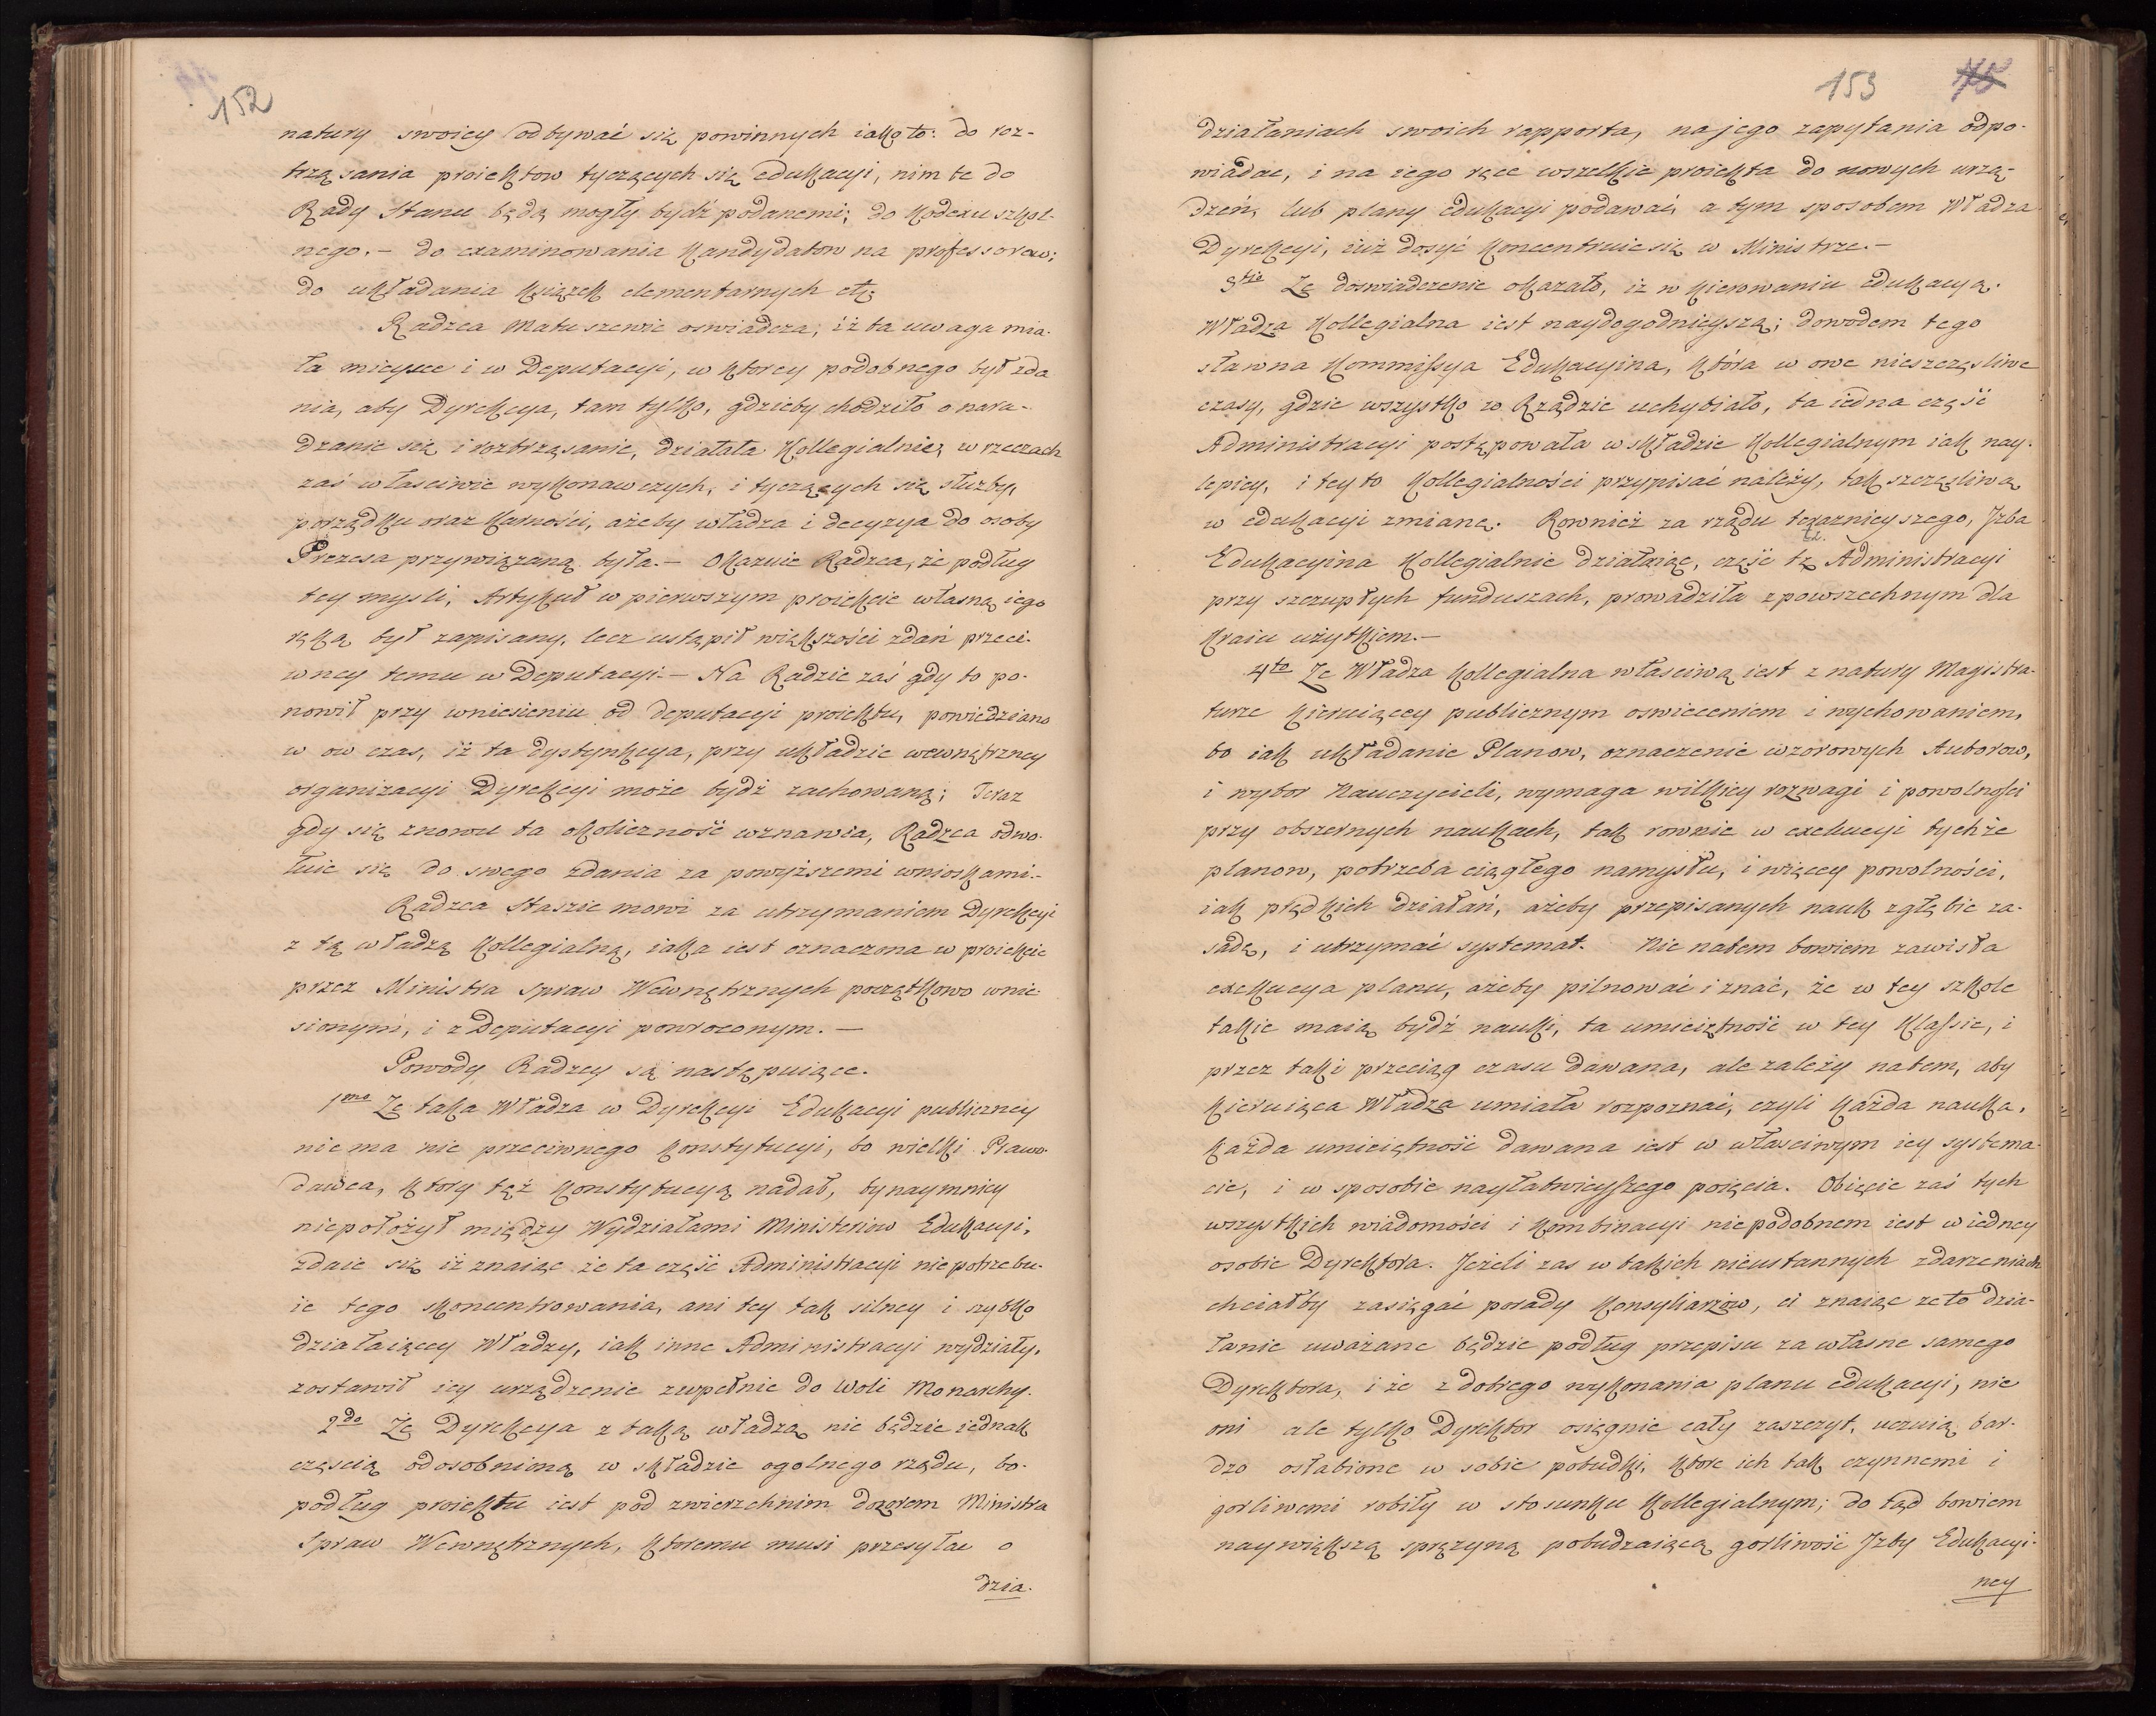 152
natury swoiey odbywać się powinnych iako to: do roz-
trząsania proiektow tyczących się edukacyi, nim te do
Rady Stanu będą mogły bydź podanemi; do Kodexu szkol-
nego. – do examinowania Kandydatow na professorow;
do układania książek elementarnych etc:
Radzca Matuszewic oswiadcza, iż ta uwaga mia-
ła mieysce i w Deputacyi, w ktorey podobnego był zda
nia, aby Dyrekcya, tam tylko, gdzieby chodziło o nara-
dzanie się i roztrząsanie, działała Kollegialnie, w rzeczach
zaś własciwie wykonawczych, i tyczących się służby,
porządku oraz karności, ażeby władza i decyzya do osoby
Prezesa przywiązaną była. – Okazuie Radzca, że podług
tey mysli, Artykuł w pierwszym proiekcie własną iego
ręką był zapisany, lecz ustąpił większości zdań przeci-
wney temu w Deputacyi. – Na Radzie zaś gdy to po-
nowił przy wniesieniu od deputacyi proiektu, powiedziano
w ow czas, iż ta dystynkcya, przy układzie wewnętrzney
organizacyi Dyrekcyi może bydź zachowaną; Teraz
gdy się znowu ta okoliczność wznawia, Radzca odwo-
łuie się do swego zdania za powyższemi wnioskami. –
Radzca Staszic mowi za utrzymaniem Dyrekcyi
z tą władzą Kollegialną, iaka iest oznaczona w proiekcie
przez Ministra Spraw Wewnętrznych początkowo wnie-
sionym, i z Deputacyi powroconym. –
Powody Radzcy są następuiące.
1mo Ze taka Władza w Dyrekcyi Edukacyi publiczney
nie ma nic przeciwnego Konstytucyi, bo wielki Prawo-
dawca, ktory tęż Konstytucyą nadał, bynaymniey
niepołożył między Wydziałami Ministeriow Edukacyi,
zdaie się iż znaiąc że ta część Administracyi niepotrzebu-
ie tego skoncentrowania, ani tey tak silney i szybko
działaiącey Władzy, iak inne Administracyi wydziały,
zostawił iey urządzenie zupełnie do Woli Monarchy.
2do Że Dyrekcya z taką władzą nie będzie iednak
częscią odosobnioną w składzie ogolnego rządu, bo
podług proiektu iest pod zwierzchnim dozorem Ministra
Spraw Wewnętrznych, ktoremu musi przesyłac o
dzia-
153 75
działaniach swoich rapporta, na jego zapytania odpo-
wiadac, i na iego ręce wszelkie proiekta do nowych urzą-
dzeń, lub plany edukacyi podawać, a tym sposobem Władza
Dyrekcyi, iuż dosyć koncentruie się w Ministrze. –
3tio Ze doswiadczenie okazało, iz w kierowaniu edukacyą
Władza Kollegialna iest naydogodnieyszą; dowodem tego
sławna Kommissya Edukacyina, ktòra w owe nieszczęsliwe
czasy, gdzie wszystko w Rządzie uchybiało, ta iedna część
Administracyi postępowała w składzie Kollegialnym iak nay-
lepiey, i tey to Kollegialności przypisać należy, tak szczęsliwą
w edukacyi zmianę. Rownież za rządu teraznieyszego, Jzba
Edukacyina Kollegialnie działaiąc, część tę Administracyi
przy szczupłych funduszach, prowadziła z powszechnym dla
Kraiu użytkiem. –
4to Ze Władza Kollegialna własciwą iest z natury Magistra-
turze kieruiącey publicznym oswieceniem i wychowaniem,
bo iak układanie Planow, oznaczenie wzorowych Autorow,
i wybor Nauczycieli, wymaga wielkiey rozwagi i powolności
przy obszernych naukach, tak rownie w exekucyi tychże
planow, potrzeba ciągłego namysłu, i więcey powolności,
iak prędkich działań, ażeby przepisanych nauk zgłębic za-
sadę, i utrzymać systemat. Nie natem bowiem zawisła
exekucya planu, ażeby pilnować i znać, że w tey szkole
takie maią bydź nauki, ta umieiętność w tey Klassie, i
przez taki przeciąg czasu dawana, ale zależy natem, aby
kieruiąca Władza umiała rozpoznać, czyli każda nauka,
każda umieiętność dawana iest w własciwym iey systema-
cie, i w sposobie nayłatwieyszego poięcia. Obięcie zaś tych
wszystkich wiadomości i kombinacyi niepodobnem iest w iedney
osobie Dyrektora. Jeżeli zas w takich nieustannych zdarzeniach
chciałby zasięgać porady Konsyliarzow, ci znaiąc ze to dzia-
łanie uważane będzie podług przepisu za własne samego
Dyrektora, i że z dobrego wykonania planu edukacyi, nie
oni ale tylko Dyrektor osięgnie cały zaszczyt, uczuią bar-
dzo osłabione w sobie pobudki, ktore ich tak czynnemi i
gorliwemi robiły w stosunku Kollegialnym; do tąd bowiem
naywiększą sprężyną pobudzaiącą gorliwość Jzby Edukacyi-
ney